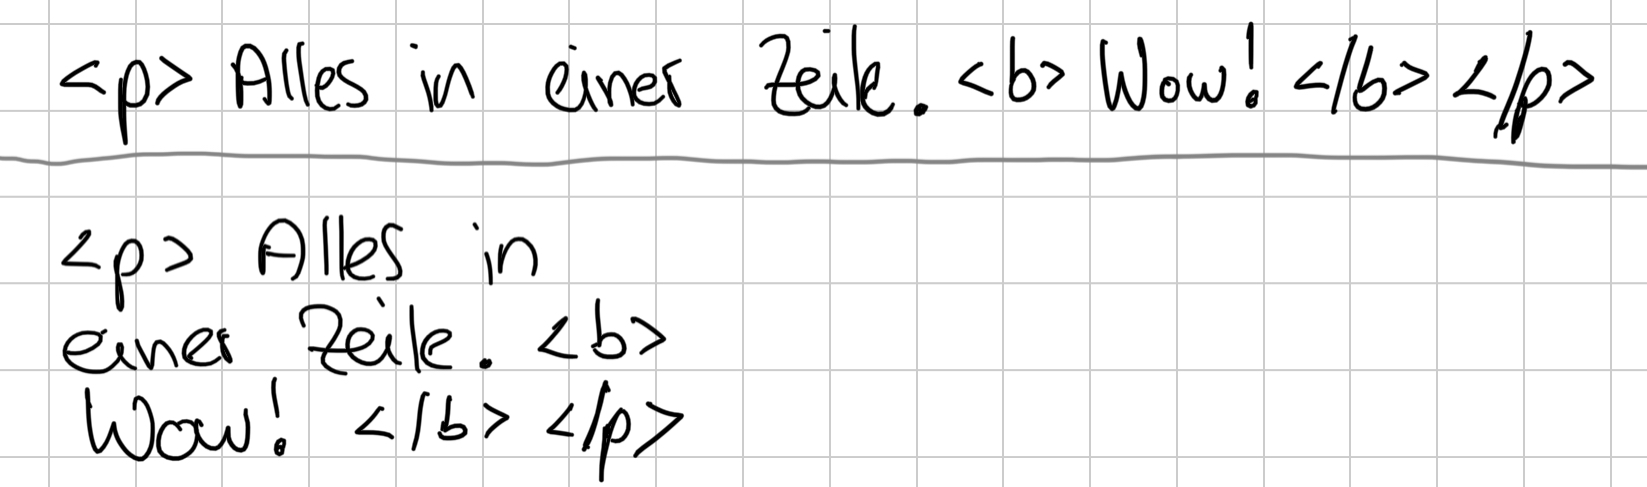 <p> Alles in einer Zeile. <b> Wow! </b> </p>
<p> Alles in
einer Zeile. <b>
Wow! </b> </p>